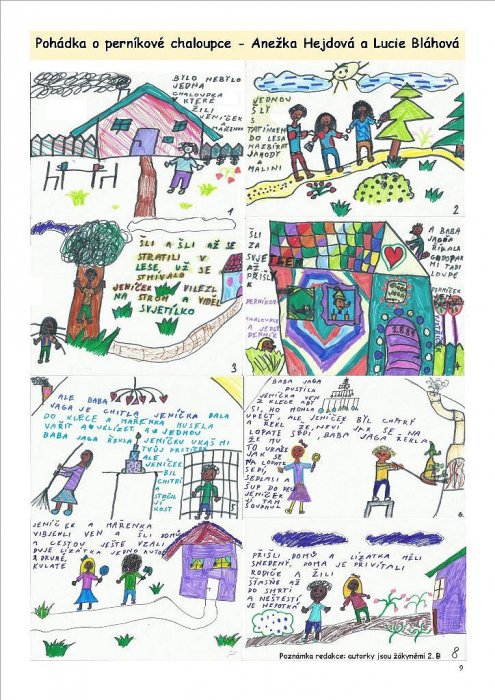 Pohádka o perníkové chaloupce - Anežka Hejdová a Lucie Bláhová
BYLO NEBYLO
JEDNA
CHALOUPKA
V KTERÉ
ŽILI
JENÍČEK
A
MAŘENKA
1
JEDNOU
ŠLY
S
TATÍNKEM
DO LESA
NAZBÍRAT
JAHODY
A
MALINI
2
ŠLI A ŠLI AŽ SE
STRATILI V
LESE, UŽ SE
STMÍVALO
JENÍČEK VILEZL
NA STROM A VIDĚL
SVJETÍLKO
3
ŠLI
ZA
SVJETLEM
AŽ
PŘIŠLI
K
PERNÍKOVÝ
CHALOUPCE
A JEDLI
PERNÍK
A BABA
JAGA
ŘÍKALA
KDO
MI TADI
LOUPE
PERNÍČEK
BABA
JAGA
4
ALE BABA
JAGA JE CHITLA JENÍČKA DALA
DO KLECE A MAŘENKA MUSELA
VAŘIT A UKLÍZET. A JEDNOU
BABA JAGA ŘEKLA JENÍČKU UKAŠ MI
TVŮJ PRSTÍČEK
ALE
JENÍČEK
BIL
CHITRÍ
A
STRČIL
JÍ
KOST
5
BABA JAGA
PUSTILA
JENÍČKA VEN
Z KLECE ABI
SI, HO MOHLA
UPÉCT, ALE JENÍČEK BYL CHITRÝ
A ŘEKL ŽE NEVÍ JAK SE NA
LOPATĚ SEDÍ, BABA JAGA ŘEKLA
ŽE MU
TO UKÁŽE
JAK SE
NA LOPATĚ
SEDÍ,
SEDLA SI
A ŠUP DO PECE
JENÍČEK
JÍ TAM
ŠOUPNUL
6.
JENÍČEK A MAŘENKA
VIBJEHLI VEN A ŠLI DOMŮ
A CESTOU JEŠTĚ VZALI
DVJE LÍZÁTKA JEDNO
A DRUHÉ
KULATÉ
PŘIŠLI DOMŮ A LÍZÁTKA MĚLI
SNEDENÝ, DOMA JE PŘIVÍTALI
RODIČE A ŽILI
ŠŤASNĚ AŽ
DO SMRTI
A NEŠTĚSTÍ
JE NEPOTKA
Poznámka redakce: autorky jsou žákyněmi 2. B
8
9